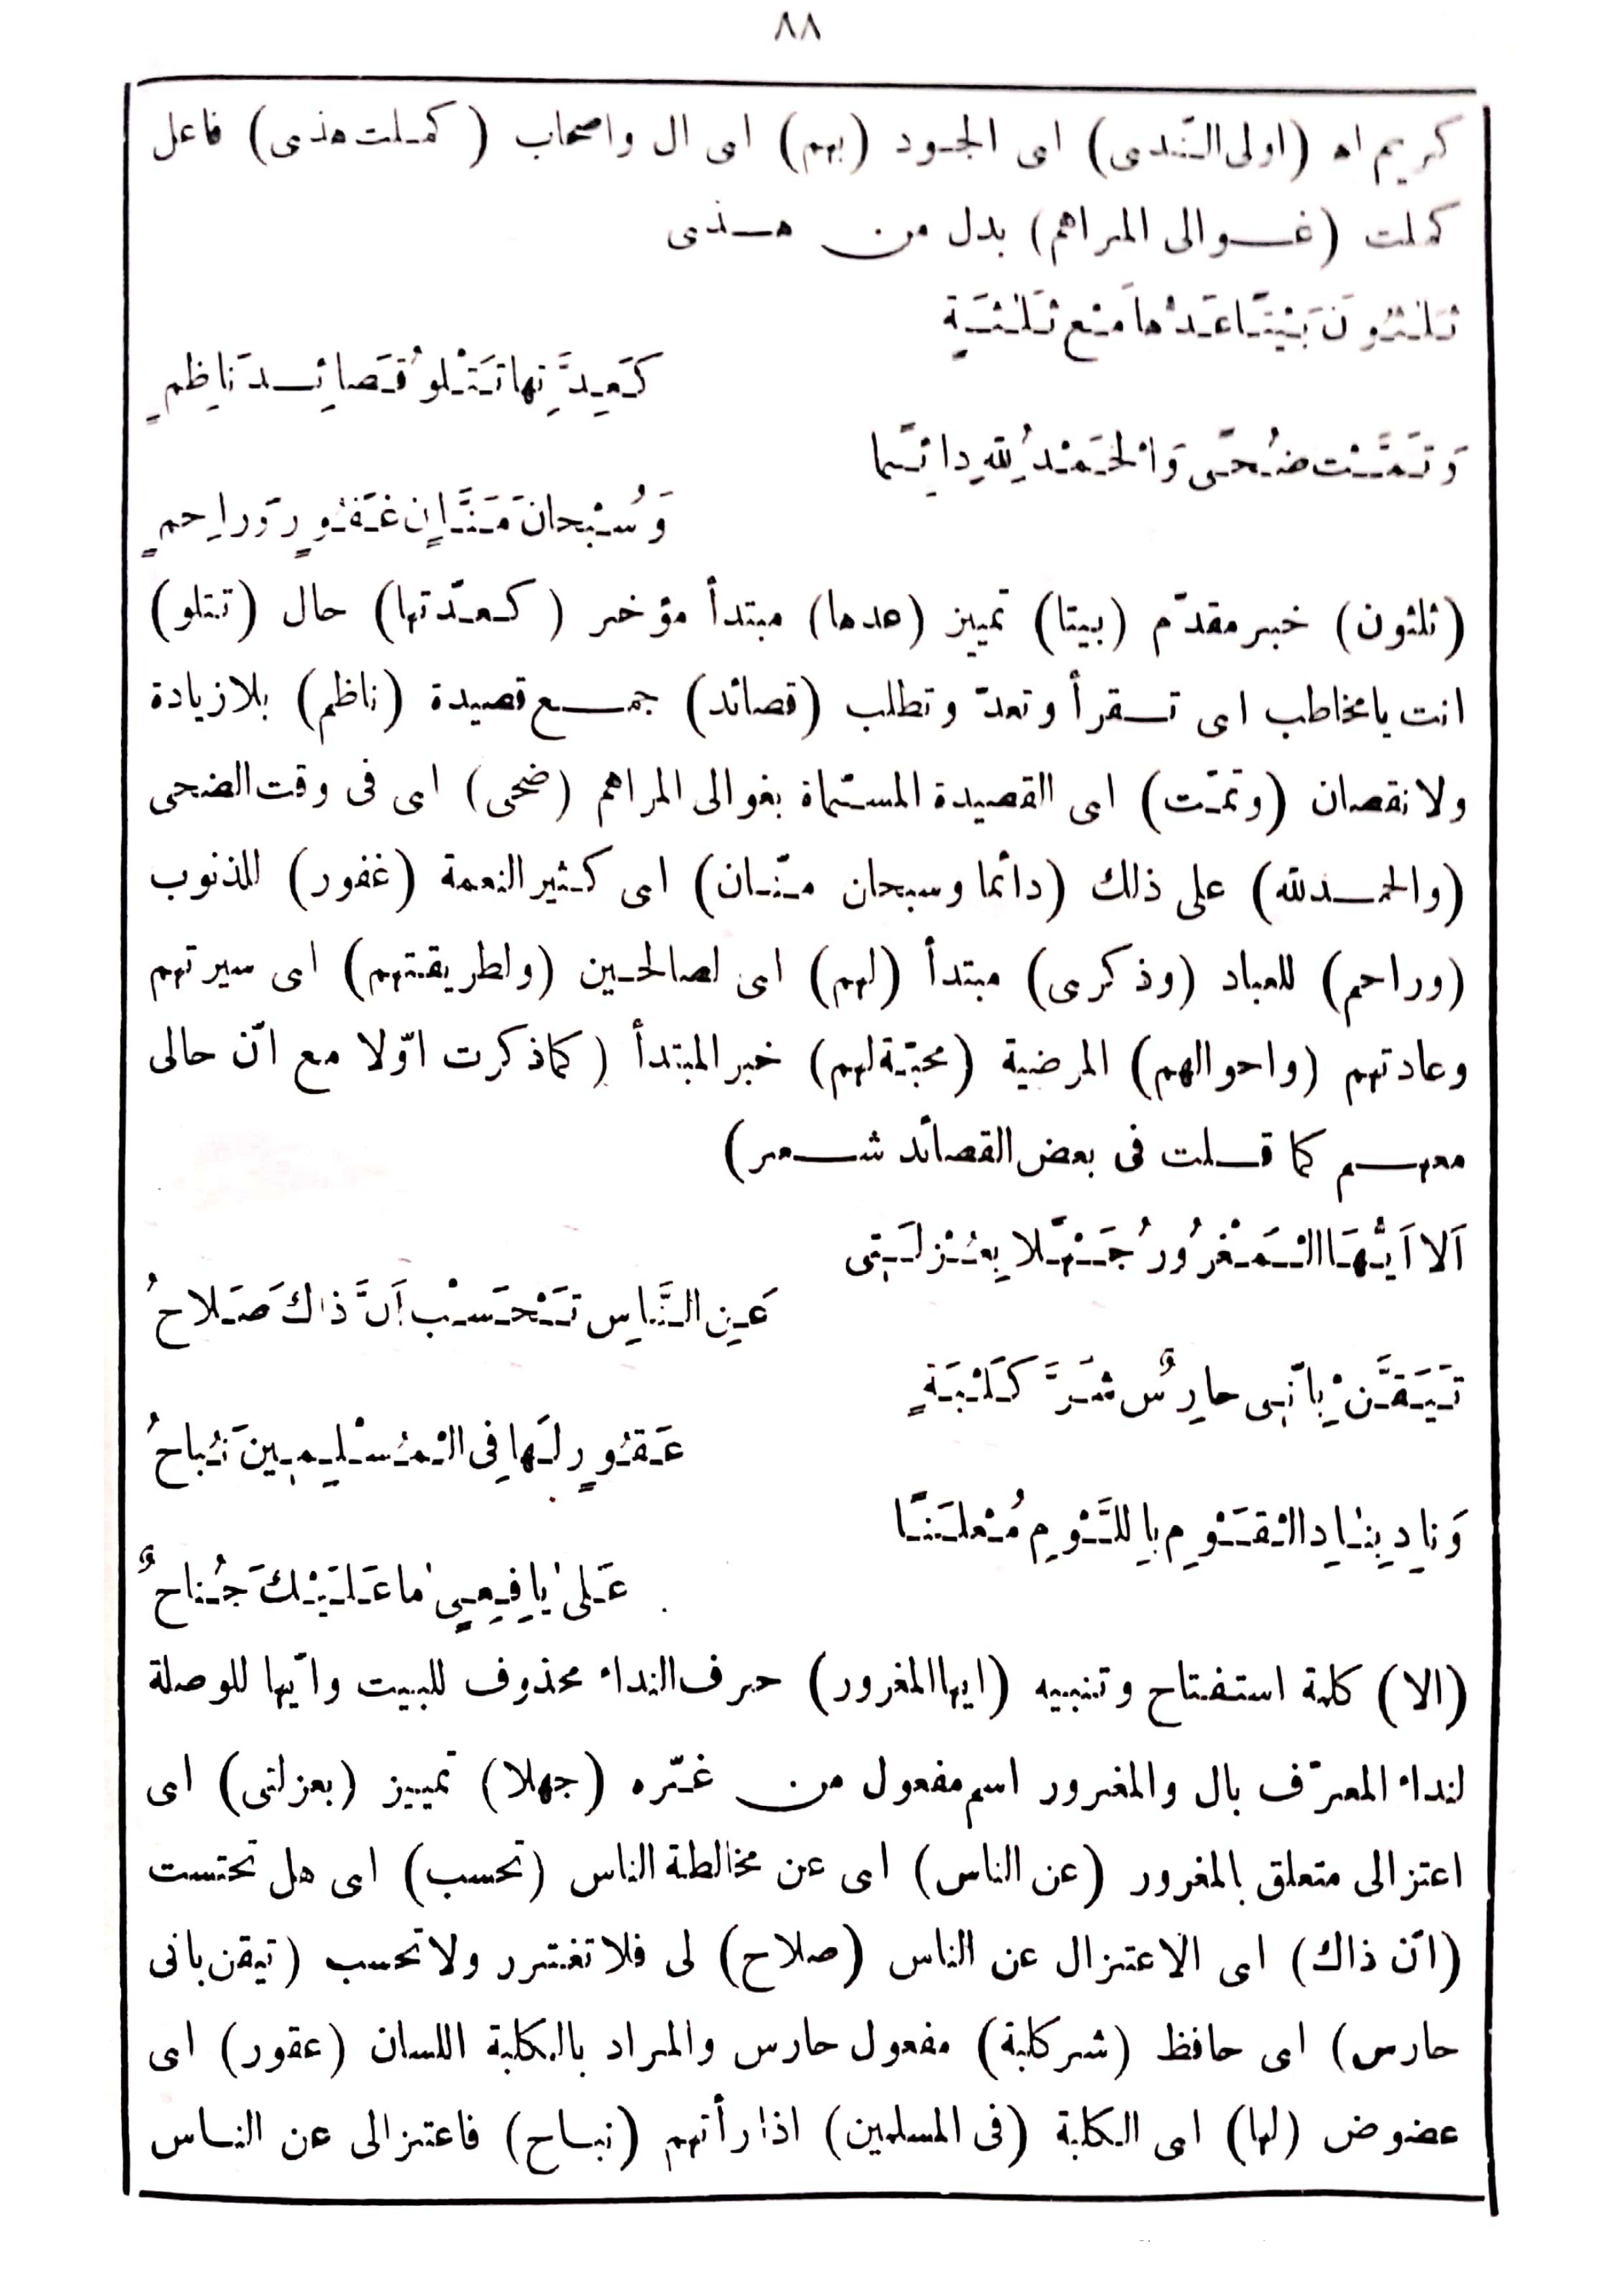 ٨٨
كريم اه (اولى النّدى) اى الجود (بهم) اى ال واصحاب (كملت هذى) فاعل
كملت (غوالى المراهم) بدل من هذى
ثَلٰثُونَ بَيْتًا عَدُّهَا مَعْ ثَلٰثَةٍ
كَعِدَّتِها تَتْلُو قَصائِدَ نَاظِمٍ
وَتَمَّتْ ضُحًى وَالْحَمْدُ لِلّٰهِ دائِمًا
وَسُبْحانَ مَنَّانٍ غَفُورٍ وَراحِمٍ
(ثلثون) خبر مقدّم (بيتا) تمييز (عدها) مبتدأ مؤخر (كعدّتها) حال (تتلو)
انت يا مخاطب اى تسقرأ وتعدّ وتطلب (قصائد) جمع قصيدة (ناظم) بلا زيادة
ولا نقصان (وتمّت) اى القصيدة المسمّاة بغوالى المراهم (ضحى) اى فى وقت الضحى
(والحمد لله) على ذلك (دائما وسبحان منّان) اى كثير النعمة (غفور) للذنوب
(وراحم) للعباد (وذكرى) مبتدأ (لهم) اى لصالحين (ولطريقتهم) اى سيرتهم
وعادتهم (واحوالهم) المرضية (محبّة لهم) خبر المبتدأ (كما ذكرت اوّلا مع انّ حالى
معهم كما قلت فى بعض القصائد شعر)
اَلا اَيُّهَا الْمَغْرُورُ جَهْلًا بِعُزْلَتِى
عَنِ النَّاسِ تَحْسَبْ اَنَّ ذاكَ صَلاحُ
تَيَقَّنْ بِاَنِّى حارِسٌ شَرَّ كَلْبَةٍ
عَقُورٍ لَها فِى الْمُسْلِمِينَ نُباحُ
وَنادِ بِنادِ الْقَوْمِ بِاللَّوْمِ مُعْلَنًا
عَلىٰ يافِعِى ما عَلَيْكَ جُناحٌ
(الا) كلمة استفتاح وتنبيه (ايها المغرور) حرف النداء محذوف للبيت وايّها للوصلة
لنداء المعرّف بال والمغرور اسم مفعول من غرّه (جهلا) تمييز (بعزلتى) اى
اعتزالى متعلق بالمغرور (عن الناس) اى عن مخالطة الناس (تحسب) اى هل تحتست
(انّ ذاك) اى الاعتزال عن الناس (صلاح) لى فلا تغترر ولا تحسب (تيقن بانى
حارس) اى حافظ (شر كلبة) مفعول حارس والمراد بالكلبة اللسان (عقور) اى
عضوض (لها) اى الكلبة (فى المسلمين) اذا رأتهم (نباح) فاعتزالى عن الناس